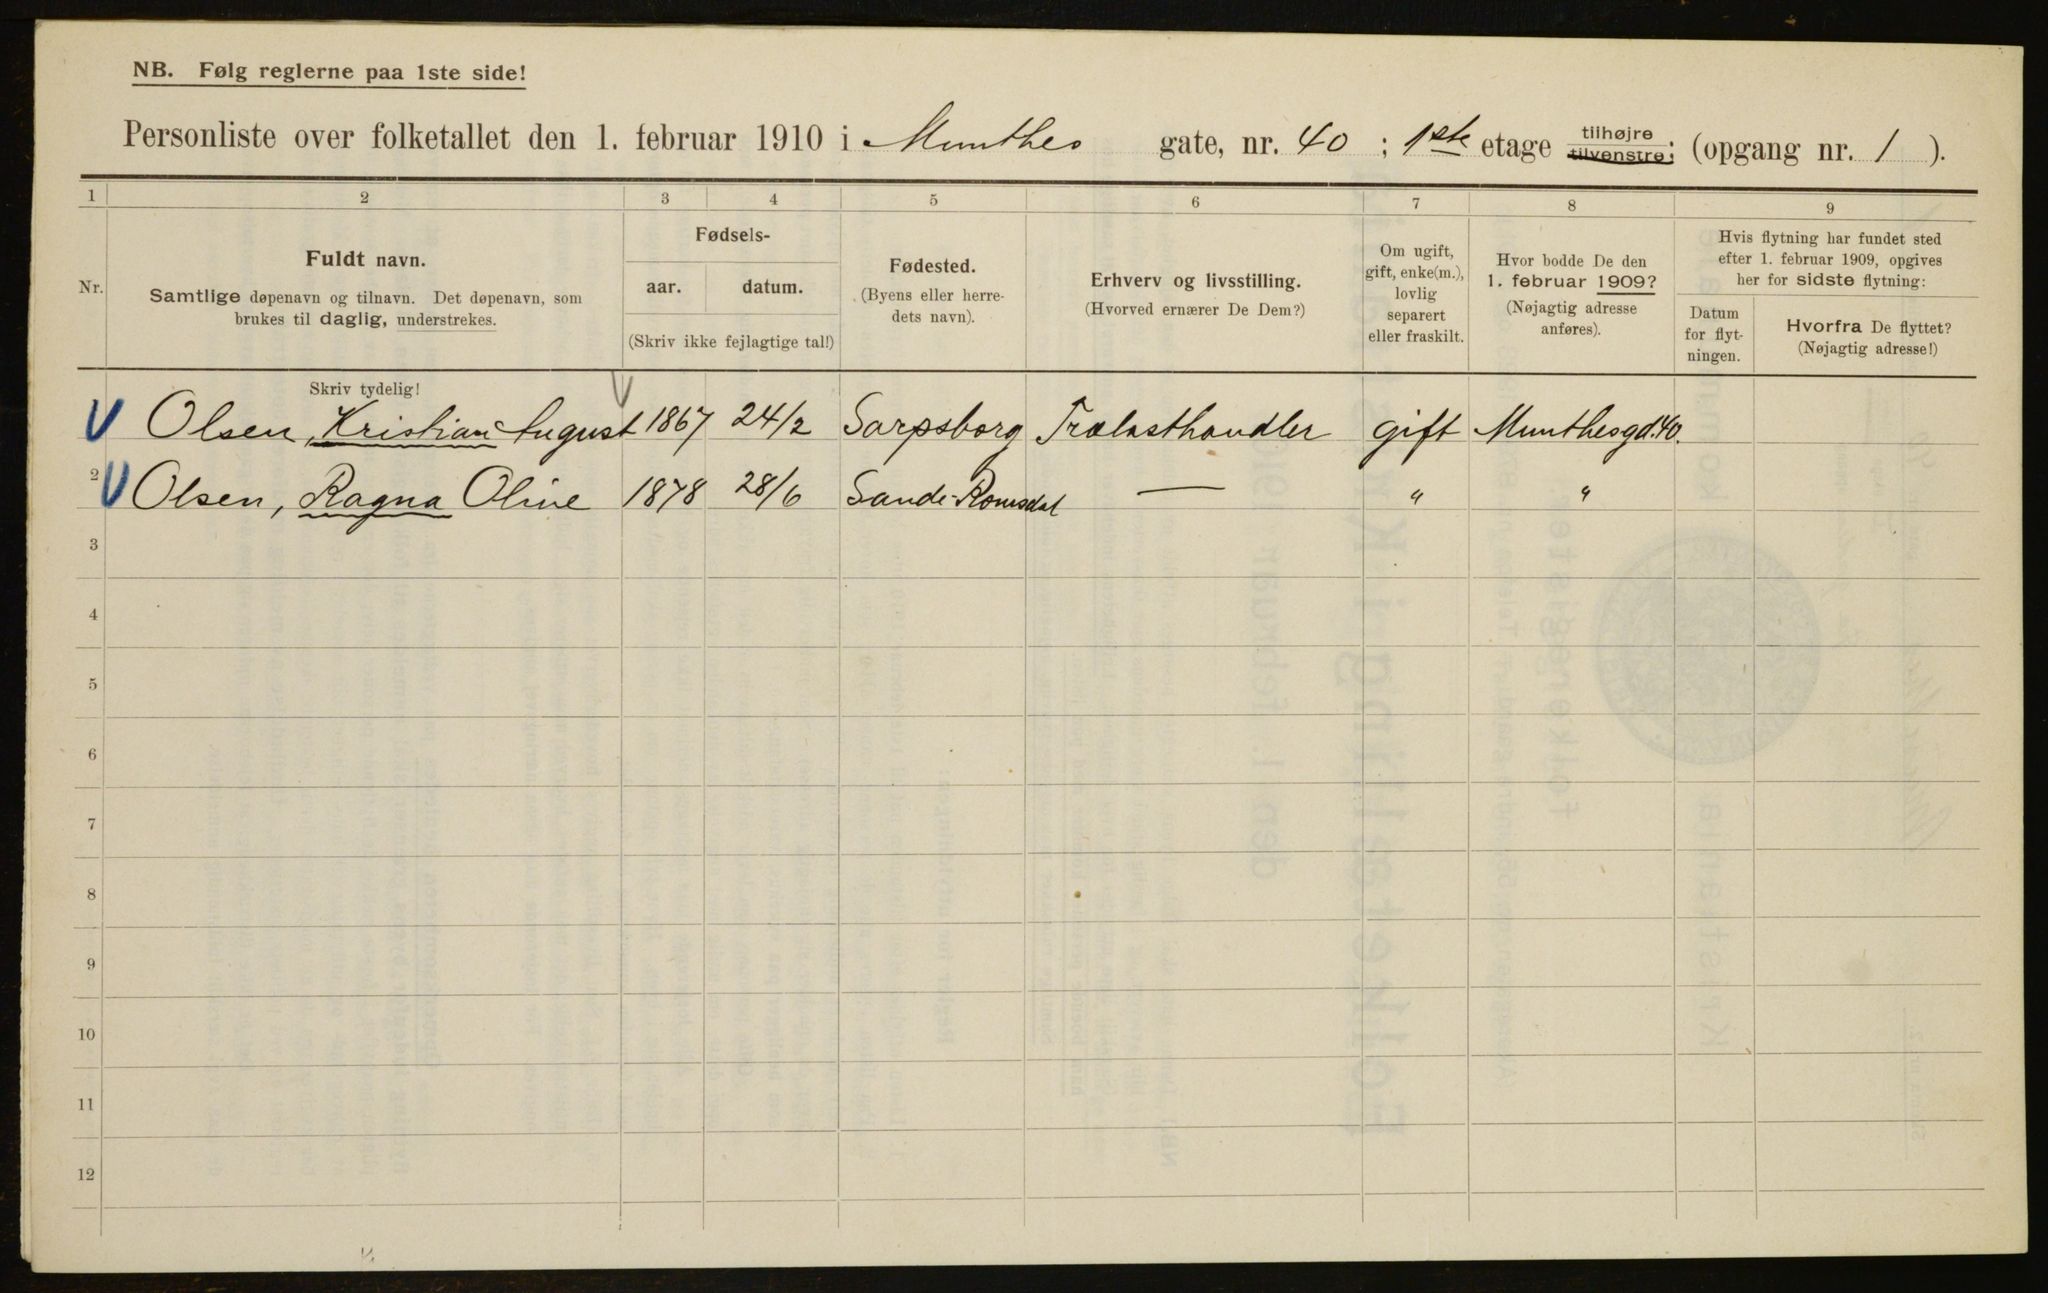 NB. Følg reglerne paa 1ste side!
Personliste over folketallet den 1. februar 1910 i Munthes gate, nr. 40 ; 1ste etage tilhøjre tilvenstre; (opgang nr. 1 ).
1 2 3 4 5 6 7 8 9
Nr.
Fuldt navn.
Samtlige døpenavn og tilnavn. Det døpenavn, som
brukes til daglig, understrekes.
Fødsels-
aar. datum.
(Skriv ikke fejlagtige tal!)
Fødested.
(Byens eller herre-
dets navn).
Erhverv og livsstilling.
(Hvorved ernærer De Dem?)
Om ugift,
gift, enke(m.),
lovlig
separert
eller fraskilt.
Hvor bodde De den
1. februar 1909?
(Nøjagtig adresse
anføres).
Hvis flytning har fundet sted
efter 1. februar 1909, opgives
her for sidste flytning:
Datum
for flyt-
ningen.
Hvorfra De flyttet?
(Nøjagtig adresse!)
Skriv tydelig!
Olsen, Kristian August 1867 24/2 Sarpsborg Trælasthandler gift Munthesgd. 40.
2 Olsen, Ragna Oline 1878 28/6 Sande-Romsdal — " "
3
4
5
6
7
8
9
10
11
12